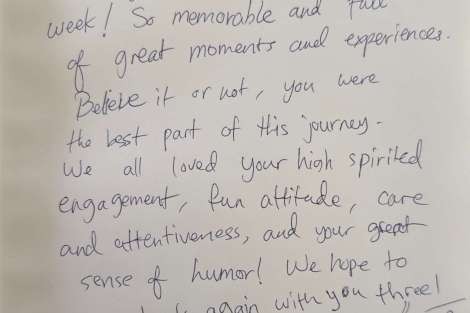 week! So memorable and full
of great moments and experiences.
Believe it or not, you were
the best part of this journey.
We all loved your high spirited
engagement, fun attitude, care
and attentiveness, and your great
sense of humor! We hope to
again with you three!